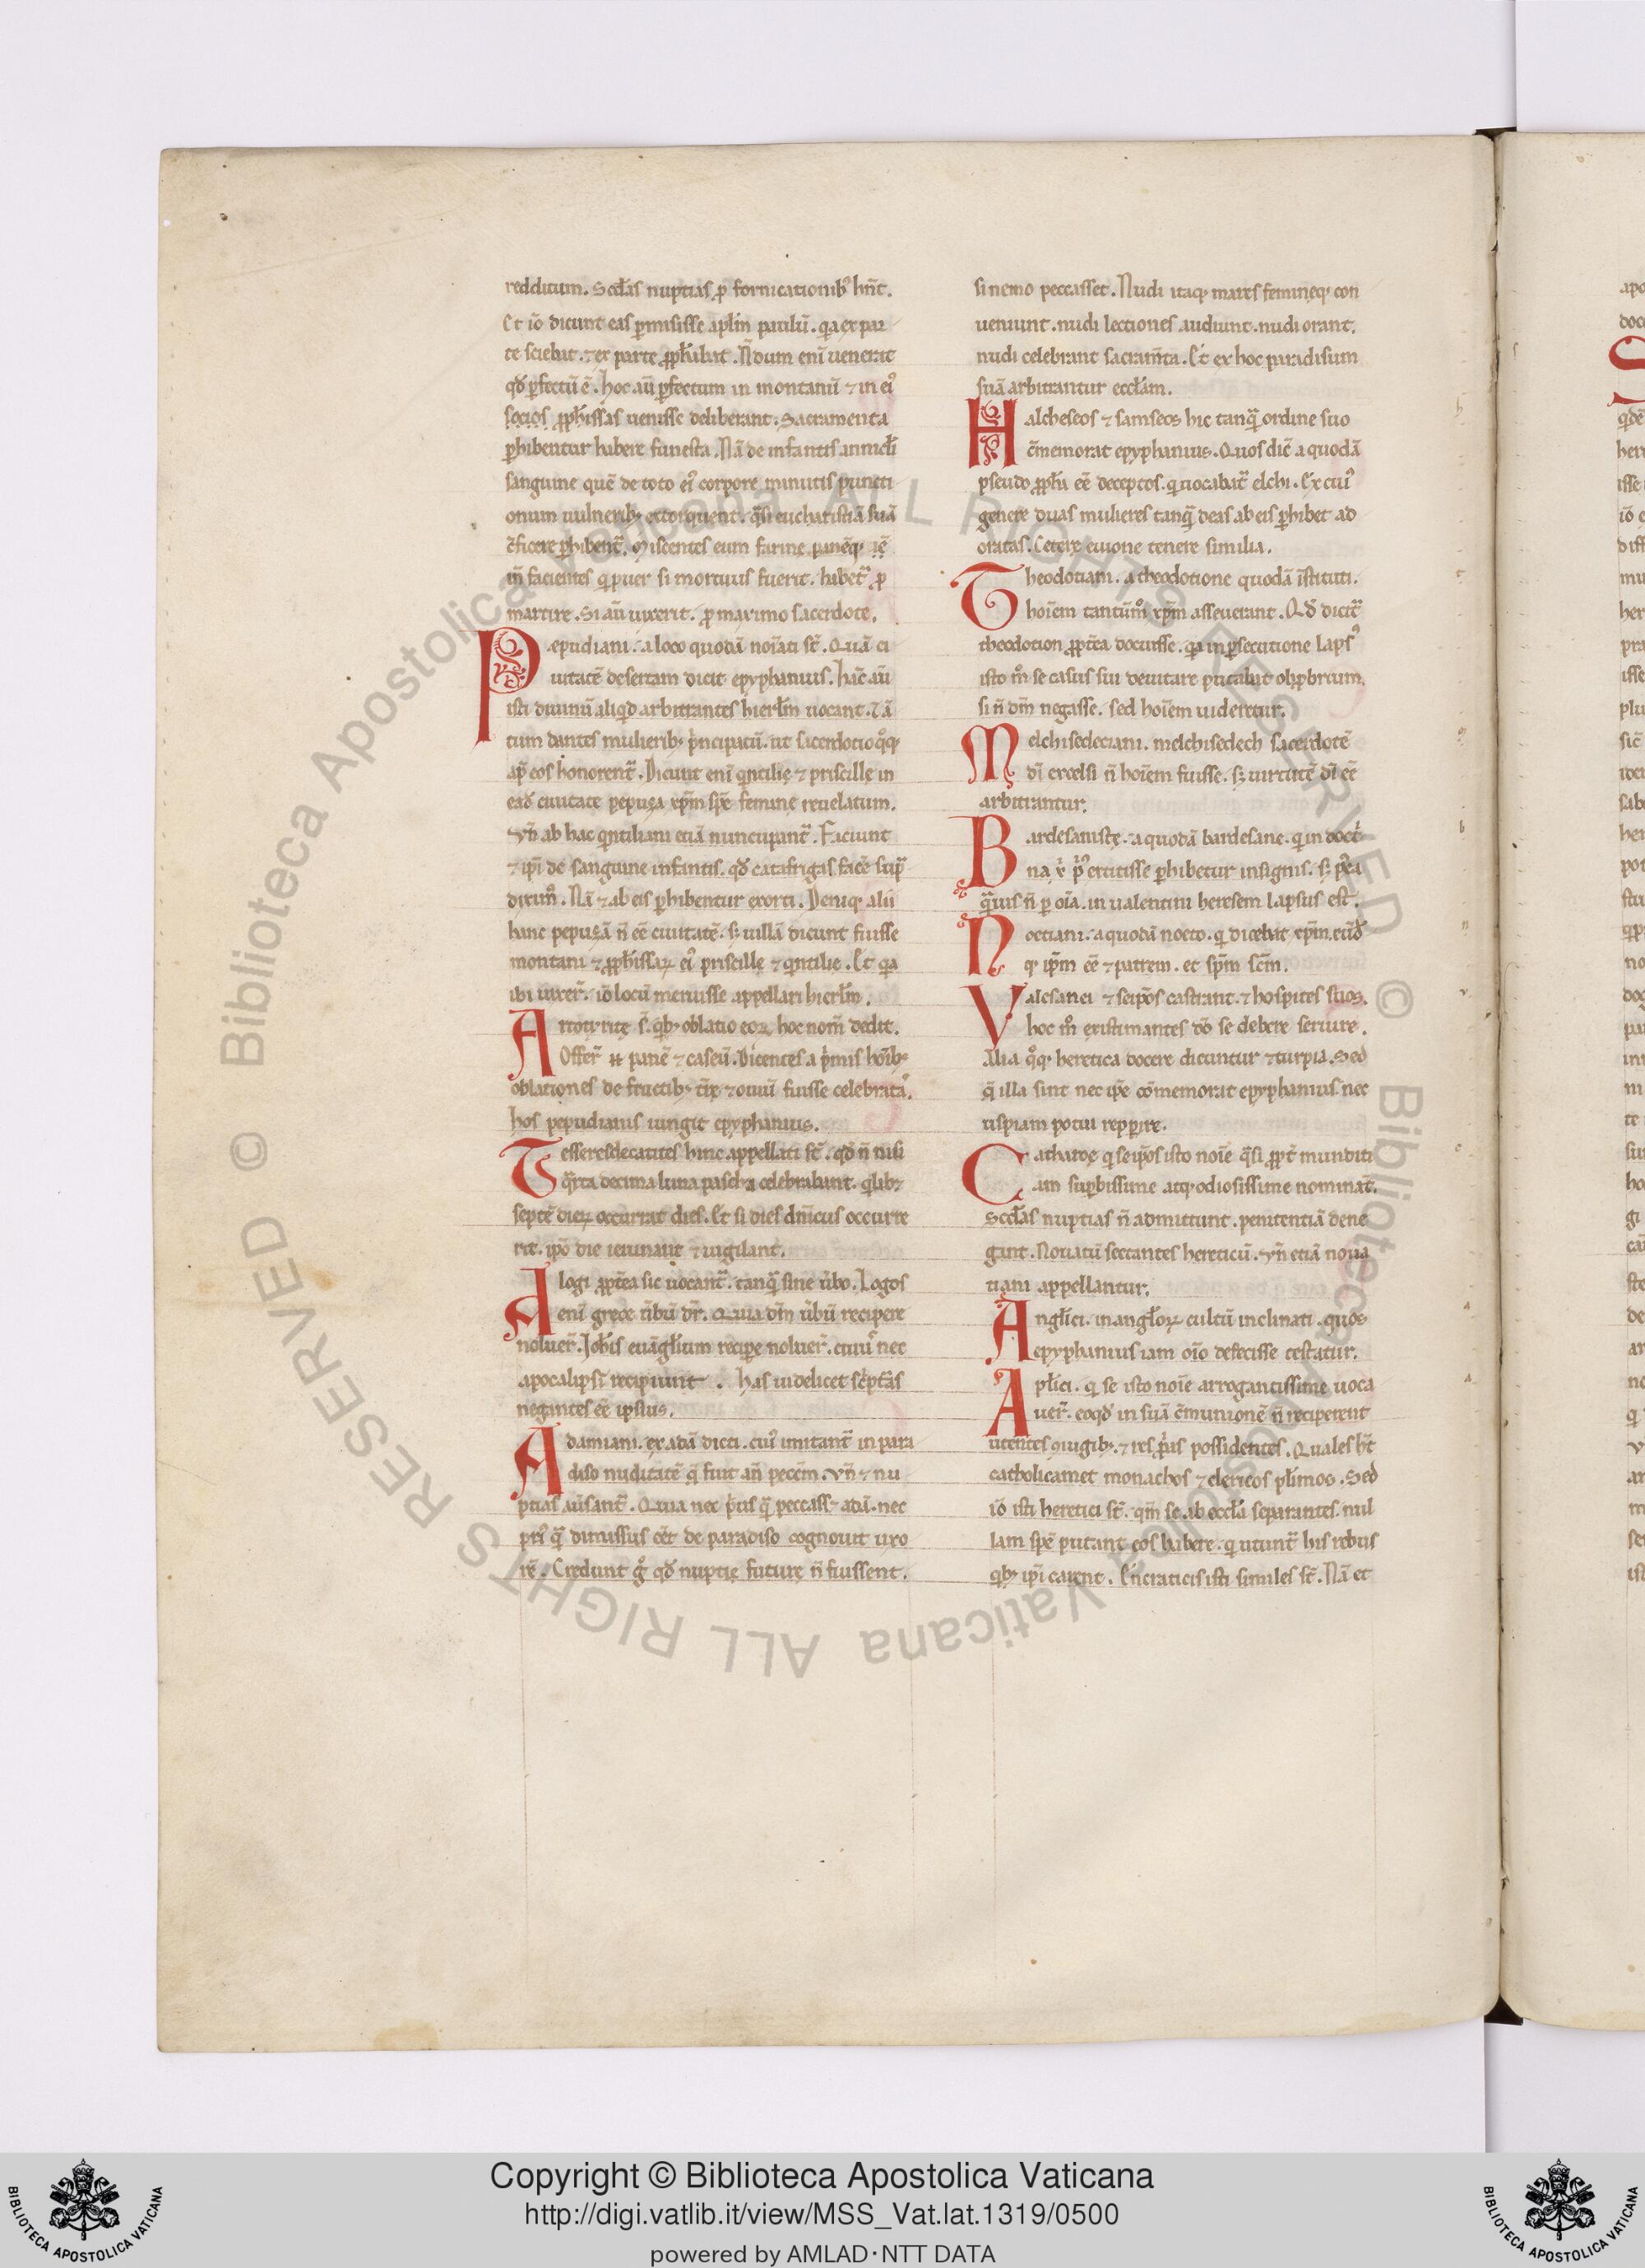 redditum. Scđas nuptias ꝓ fornicationibꝰ hn̄t.
Et iō dicunt eas ꝑmisisse apl̄m paulū. qꝛ ex par
te sciebat. ⁊ ex parte ꝓph̄abat. N̄dum eni̅ uenerat
qđ ꝑfectū ē. Hoc aū ꝑfectum in montanū ⁊ in eiꝰ
socios ꝓph̄issas uenisse deliberant. Sacramenta
ꝑhibentur habere funesta. Nā de infantis anniclī
sanguine quē de toto eiꝰ corpore minutis puncti
onum uulneribꝫ extorquent. q̄si eucharistiā suā
c̄ficere ꝑhibent᷑. Miscentes eum farine. panēqꝫ
in̄ facientes q puer si mortuus fuerit. habet᷑ ꝓ
martire. Si aū uixerit. ꝓ maximo sacerdote.
Pepudiani. a loco quodā noīati st̄. Quā ci
uitatē desertam dicit epyphanius. Hāc aū
isti diuinū aliqd arbitrantes hierl̄m uocant. Tā
tum dantes mulieribꝫ pͥncipatū. ut sacerdotio qͦqꝫ
ap̄ eos honorent᷑. Dicunt eni̅ qͥntilię ⁊ priscillę in
eađ ciuitate pepuza xp̄m spē feminę reuelatum.
Vn̄ ab hac qͥntiliani etiā nuncupant᷑. Faciunt
⁊ ip̄i de sanguine infantis. qđ catafrigas facē sup͛
diximꝰ. Nā ⁊ ab eis ꝑhibentur exorti. Deniqꝫ alii
hanc pepuzā n̄ eē ciuitatē. sꝫ uillā dicunt fuisse
montani ⁊ ꝓph̄issaꝝ eiꝰ priscillę ⁊ qͥntilię. Et qꝛ
ibi uixer̄. iō locū meruisse appellari hierl̄m.
Artotyritę s̄. qͥbꝫ oblatio eoꝝ hoc nom̄ dedit.
Offer̄ n̄ panē ⁊ caseū. Dicentes a pͥmis hoībꝫ
oblationes de fructibꝫ t̄rę ⁊ ouiū fuisse celebratas.
hos pepudianis iungit epyphanius.
Tesseresdecatites hinc appellati st̄. qđ n̄ nisi
q̄rta decima luna pascha celebrabunt. qͥlibꝫ
septē dieꝝ occurrat dies. Et si dies dn̄icus occurre
rit. ip̄o die ieiunant ⁊ uigilant.
Alogi ꝓpt̄ea sic uocant᷑. tanq̄ sine ūbo. Logos
eni̅ grece ūbū dr̄. Quia dm̄ ūbū recipere
noluer̄. Ioh̄is euāgl̄ium recipe noluer̄. cuiꝰ nec
apocalipsī recipiunt. has uidelicet sc̄pt̄as
negantes eē ipsius.
Adamiani. ex adā dicti. cuiꝰ imitant᷑ in para
diso nuditatē q̄ fuit an̄ pecc̄m. Vn̄ ⁊ nu
ptias aūsant᷑. Quia nec pͥus q̄ peccass; adā. nec
priꝰ q̄ dimissus eēt de paradiso cognouit uxo
rē. Credunt gͦ qđ nuptię futurę n̄ fuissent.
si nemo peccasset. Nudi itaqꝫ mares femineqꝫ con
ueniunt. nudi lectiones audiunt. nudi orant.
nudi celebrant sacram̄ta. Et ex hoc paradisum
suā arbitrantur eccl̄am.
Halcheseos ⁊ samseos hic tanq̄ ordine suo
c̄memorat epyphanius. Quos dic̄ a quodā
pseudo ꝓph̄a eē deceptos. qͥ uocabat᷑ elchi. Ex cuiꝰ
genere duas mulieres tanq̄ deas ab eis ꝑhibet ad
oratas. Cetera euione tenere similia.
Theodotiani. a theodotione quodā īstituti.
hoīem tantūm̊ xp̄m asseuerant. Qđ dicit᷑
theodotion ꝓpt̄ea docuisse. qꝛ in ꝑsecutione lapsꝰ
isto m̊ se casus sui deuitare putabat obꝓbrium.
si n̄ dm̄ negasse. sed hoīem uideretur.
Melchisedeciani. melchisedech sacerdotē
dī excelsi n̄ hoīem fuisse. sꝫ uirtutē dī eē
arbitrantur.
Bardesanistę. a quodā bardesane. qͥ in doct̄
na xͥ pͥꝰ extitisse ꝑhibetur insignis. sꝫ
q̄uis n̄ ꝑ oīa. in ualentini heresem lapsus est.
Noetiani. a quodā noeto. qͥ dicebat xp̄m. eūđ
qꝫ ip̄m eē ⁊ patrem. et sp̄m sc̄m.
Valesanei ⁊ seip̄os castrant. ⁊ hospites suos.
hoc m̊ existimantes dō se debere seruire.
Alia qͦqꝫ heretica docere dicuntur ⁊ turpia. Sed
q̄ illa sint nec ip̄e cōmemorat epyphanius. nec
uspiam potui reꝑire.
Catharoę qͥ seip̄os isto noīe q̄si ꝓpt̄ munditi
am suꝑbissime atqꝫ odiosissime nominat.
Scđas nuptias n̄ admittunt. penitentiā dene
gant. Nouatū sectantes hereticū. Vn̄ etiā noua
tiani appellantur.
Angl̄ici. in angl̄oꝝ cultū inclinati. quos
epyphanius iam oīo defecisse testatur.
Apl̄ici. qͥ se isto noīe arrogantissime uoca
uer̄. eo qđ in suā c̄munionē n̄ reciperent
utentes ꝯiugibꝫ. ⁊ res ꝓpͥas possidentes. Quales ht̄
catholica met monachos ⁊ clericos pl̄imos. Sed
iō isti heretici st̄. qm̄ se ab eccl̄a separantes. nul
lam spē putant eos habere. qͥ utunt᷑ his rebus
qͥbꝫ ip̄i carent. Encraticis isti similes st̄. Nā et
Copyright © Biblioteca Apostolica Vaticana
http://digi.vatlib.it/view/MSS_Vat.lat.1319/0500
powered by AMLAD·NTT DATA
BIBLIOTECA APOSTOLICA VATICANA
BIBLIOTECA APOSTOLICA VATICANA
© Biblioteca Apostolica Vaticana ALL RIGHTS RESERVED © Biblioteca Apostolica Vaticana ALL RIGHTS RESERVED